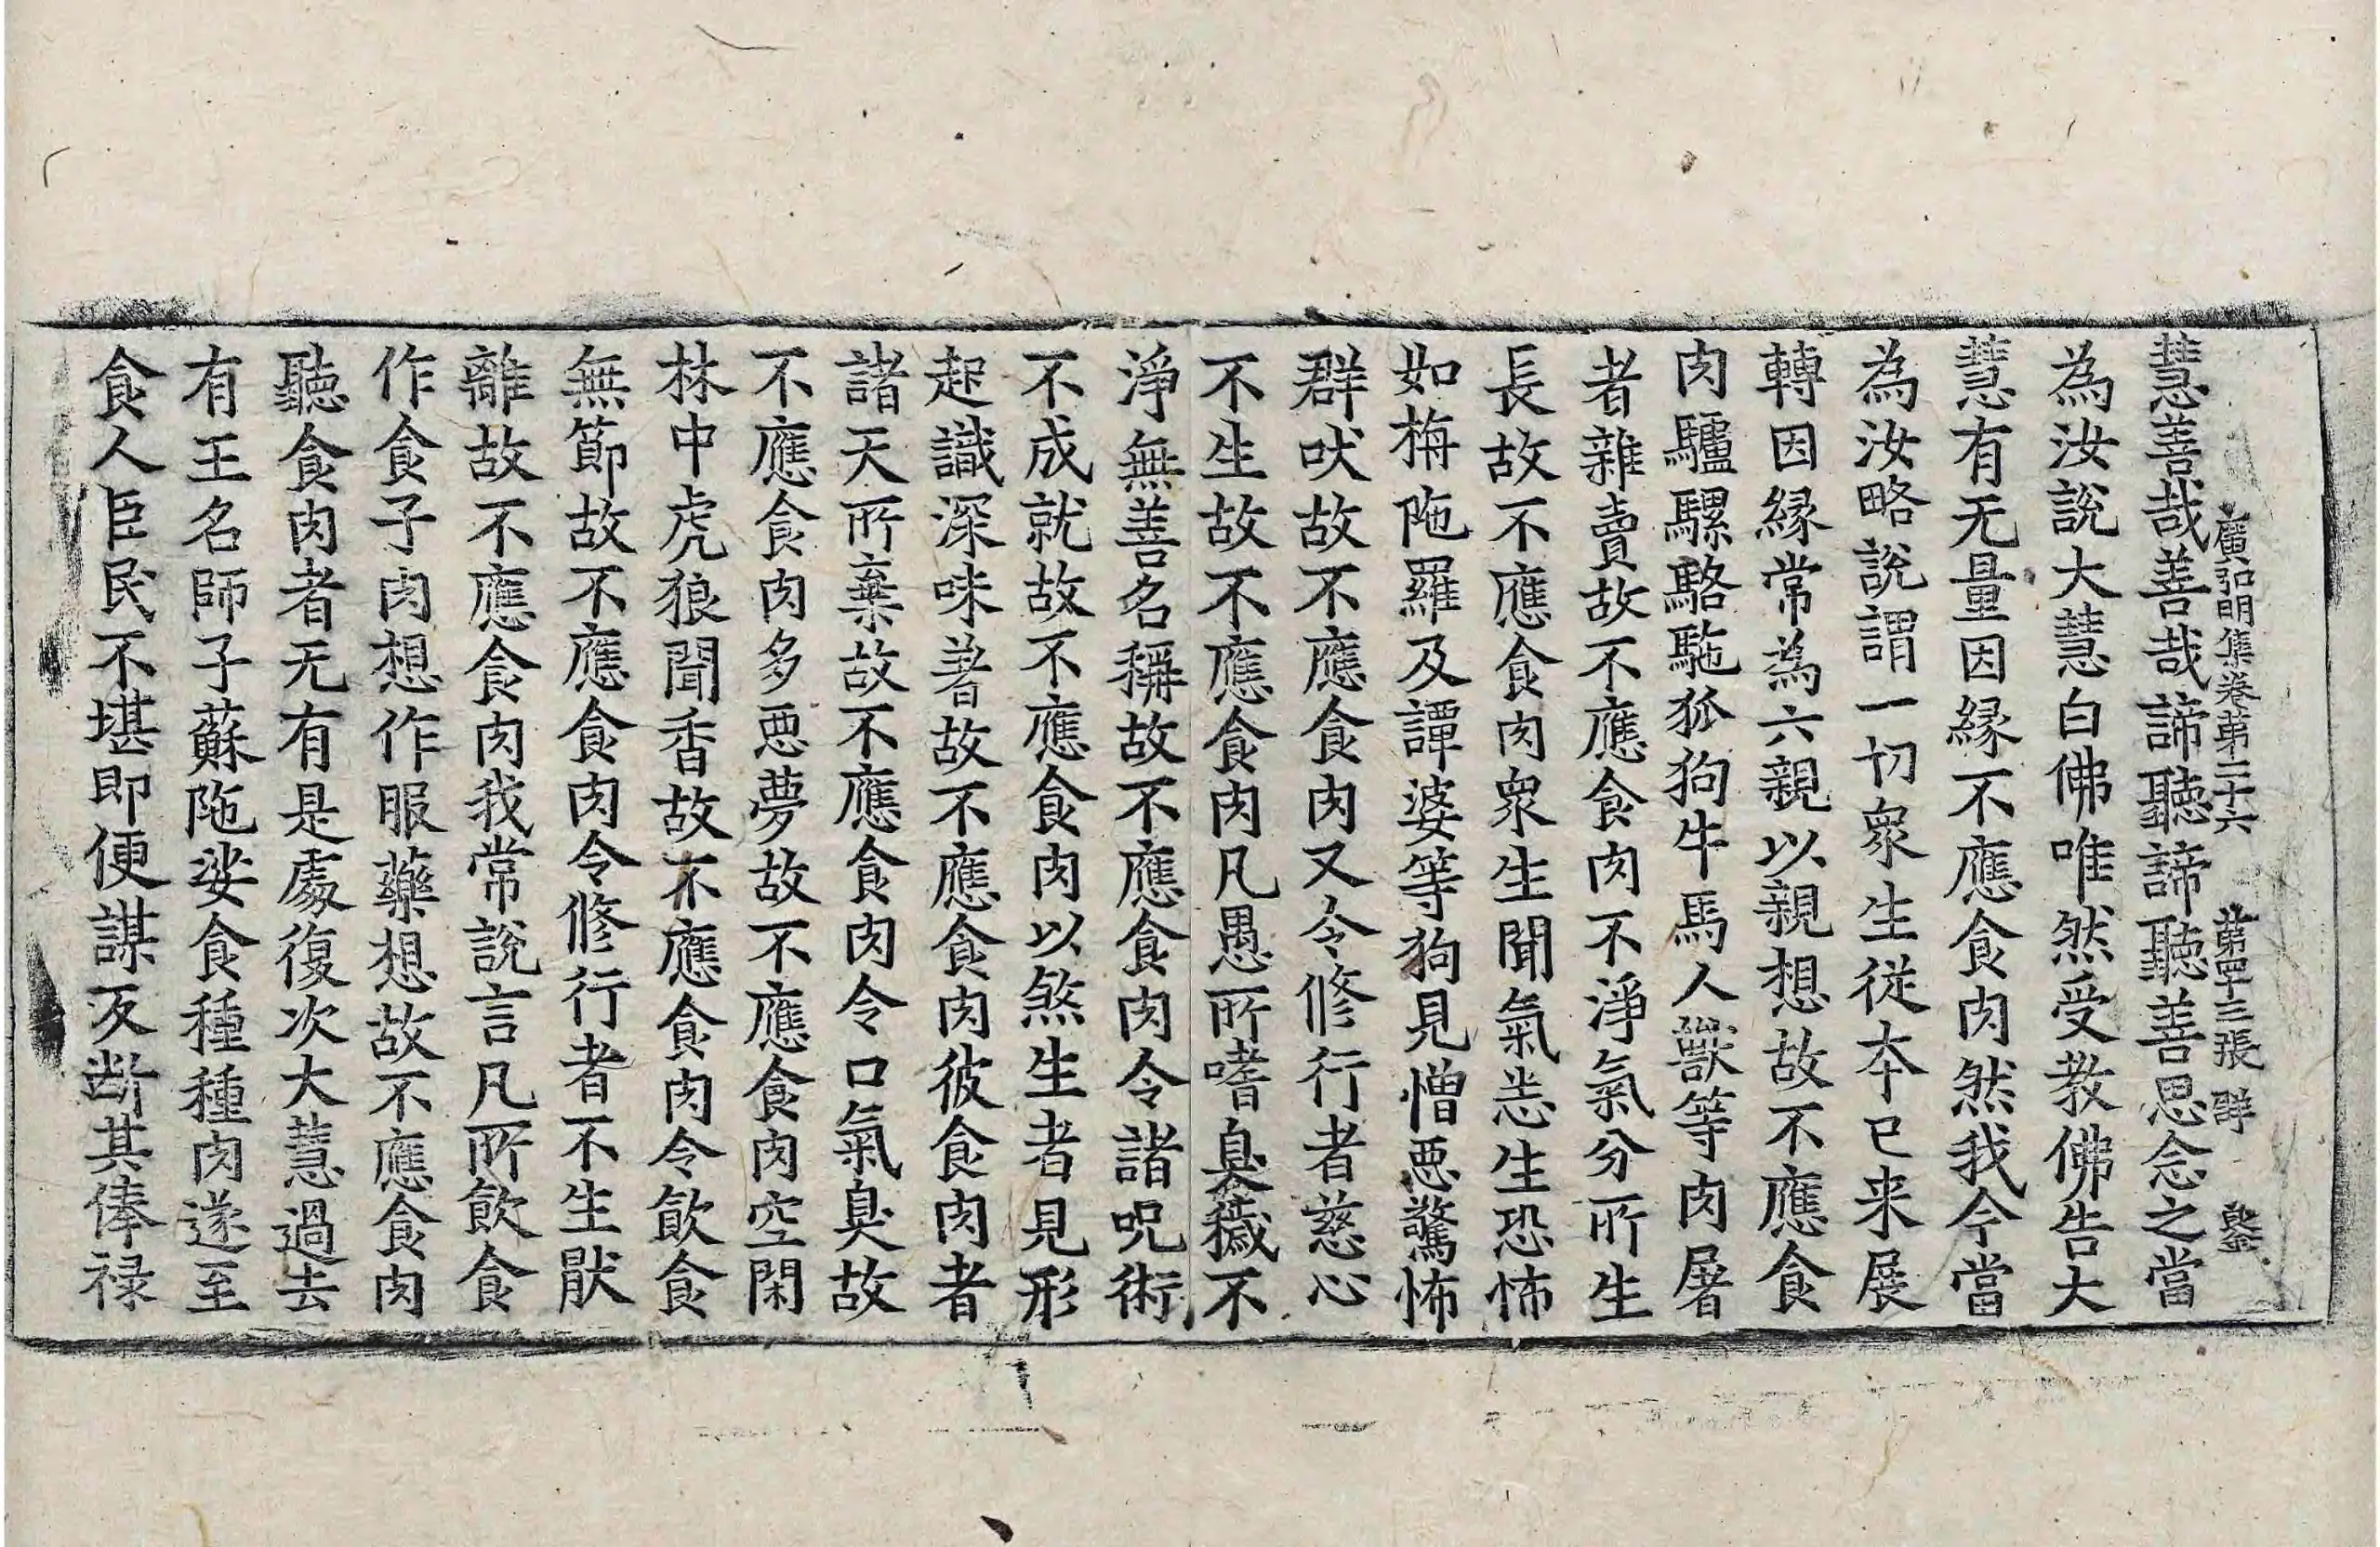 廣弘明集卷第二十六 第四十三張 群
慧善哉善哉諦聽諦聽善思念之當
為汝說大慧白佛唯然受教佛告大
慧有无量因緣不應食肉然我今當
為汝略說謂一切衆生從本已來展
轉因緣常為六親以親想故不應食
肉驢騾駱駞狐狗牛馬人獸等肉屠
者雜賣故不應食肉不淨氣分所生
長故不應食肉衆生聞氣悉生恐怖
如栴陁羅及譚婆等狗見憎惡驚怖
群吠故不應食肉又令修行者慈心
不生故不應食肉凡愚所嗜臭穢不
淨無善名稱故不應食肉令諸呪術
不成就故不應食肉以煞生者見形
起識深味著故不應食肉彼食肉者
諸天所棄故不應食肉令口氣臭故
不應食肉多惡夢故不應食肉空閑
林中虎狼聞香故不應食肉令飲食
無節故不應食肉令修行者不生厭
離故不應食肉我常說言凡所飲食
作食子肉想作服藥想故不應食肉
聽食肉者无有是處復次大慧過去
有王名師子蘇陁娑食種種肉遂至
食人臣民不堪即便謀反断其俸禄